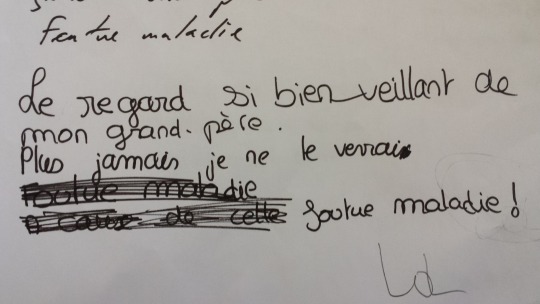 Foutue maladie
Le regard si bienveillant de
mon grand-père.
Plus jamais je ne le verrai
Foutue maladie
à cause de cette foutue maladie !